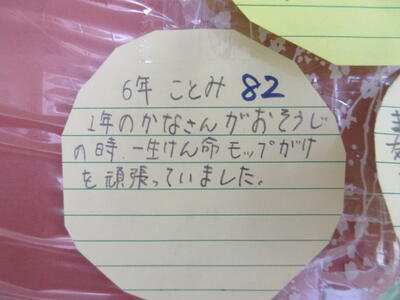 6年 ことみ 82
1年のかなさんがおそうじ
の時、一生けん命モップがけ
を頑張っていました。